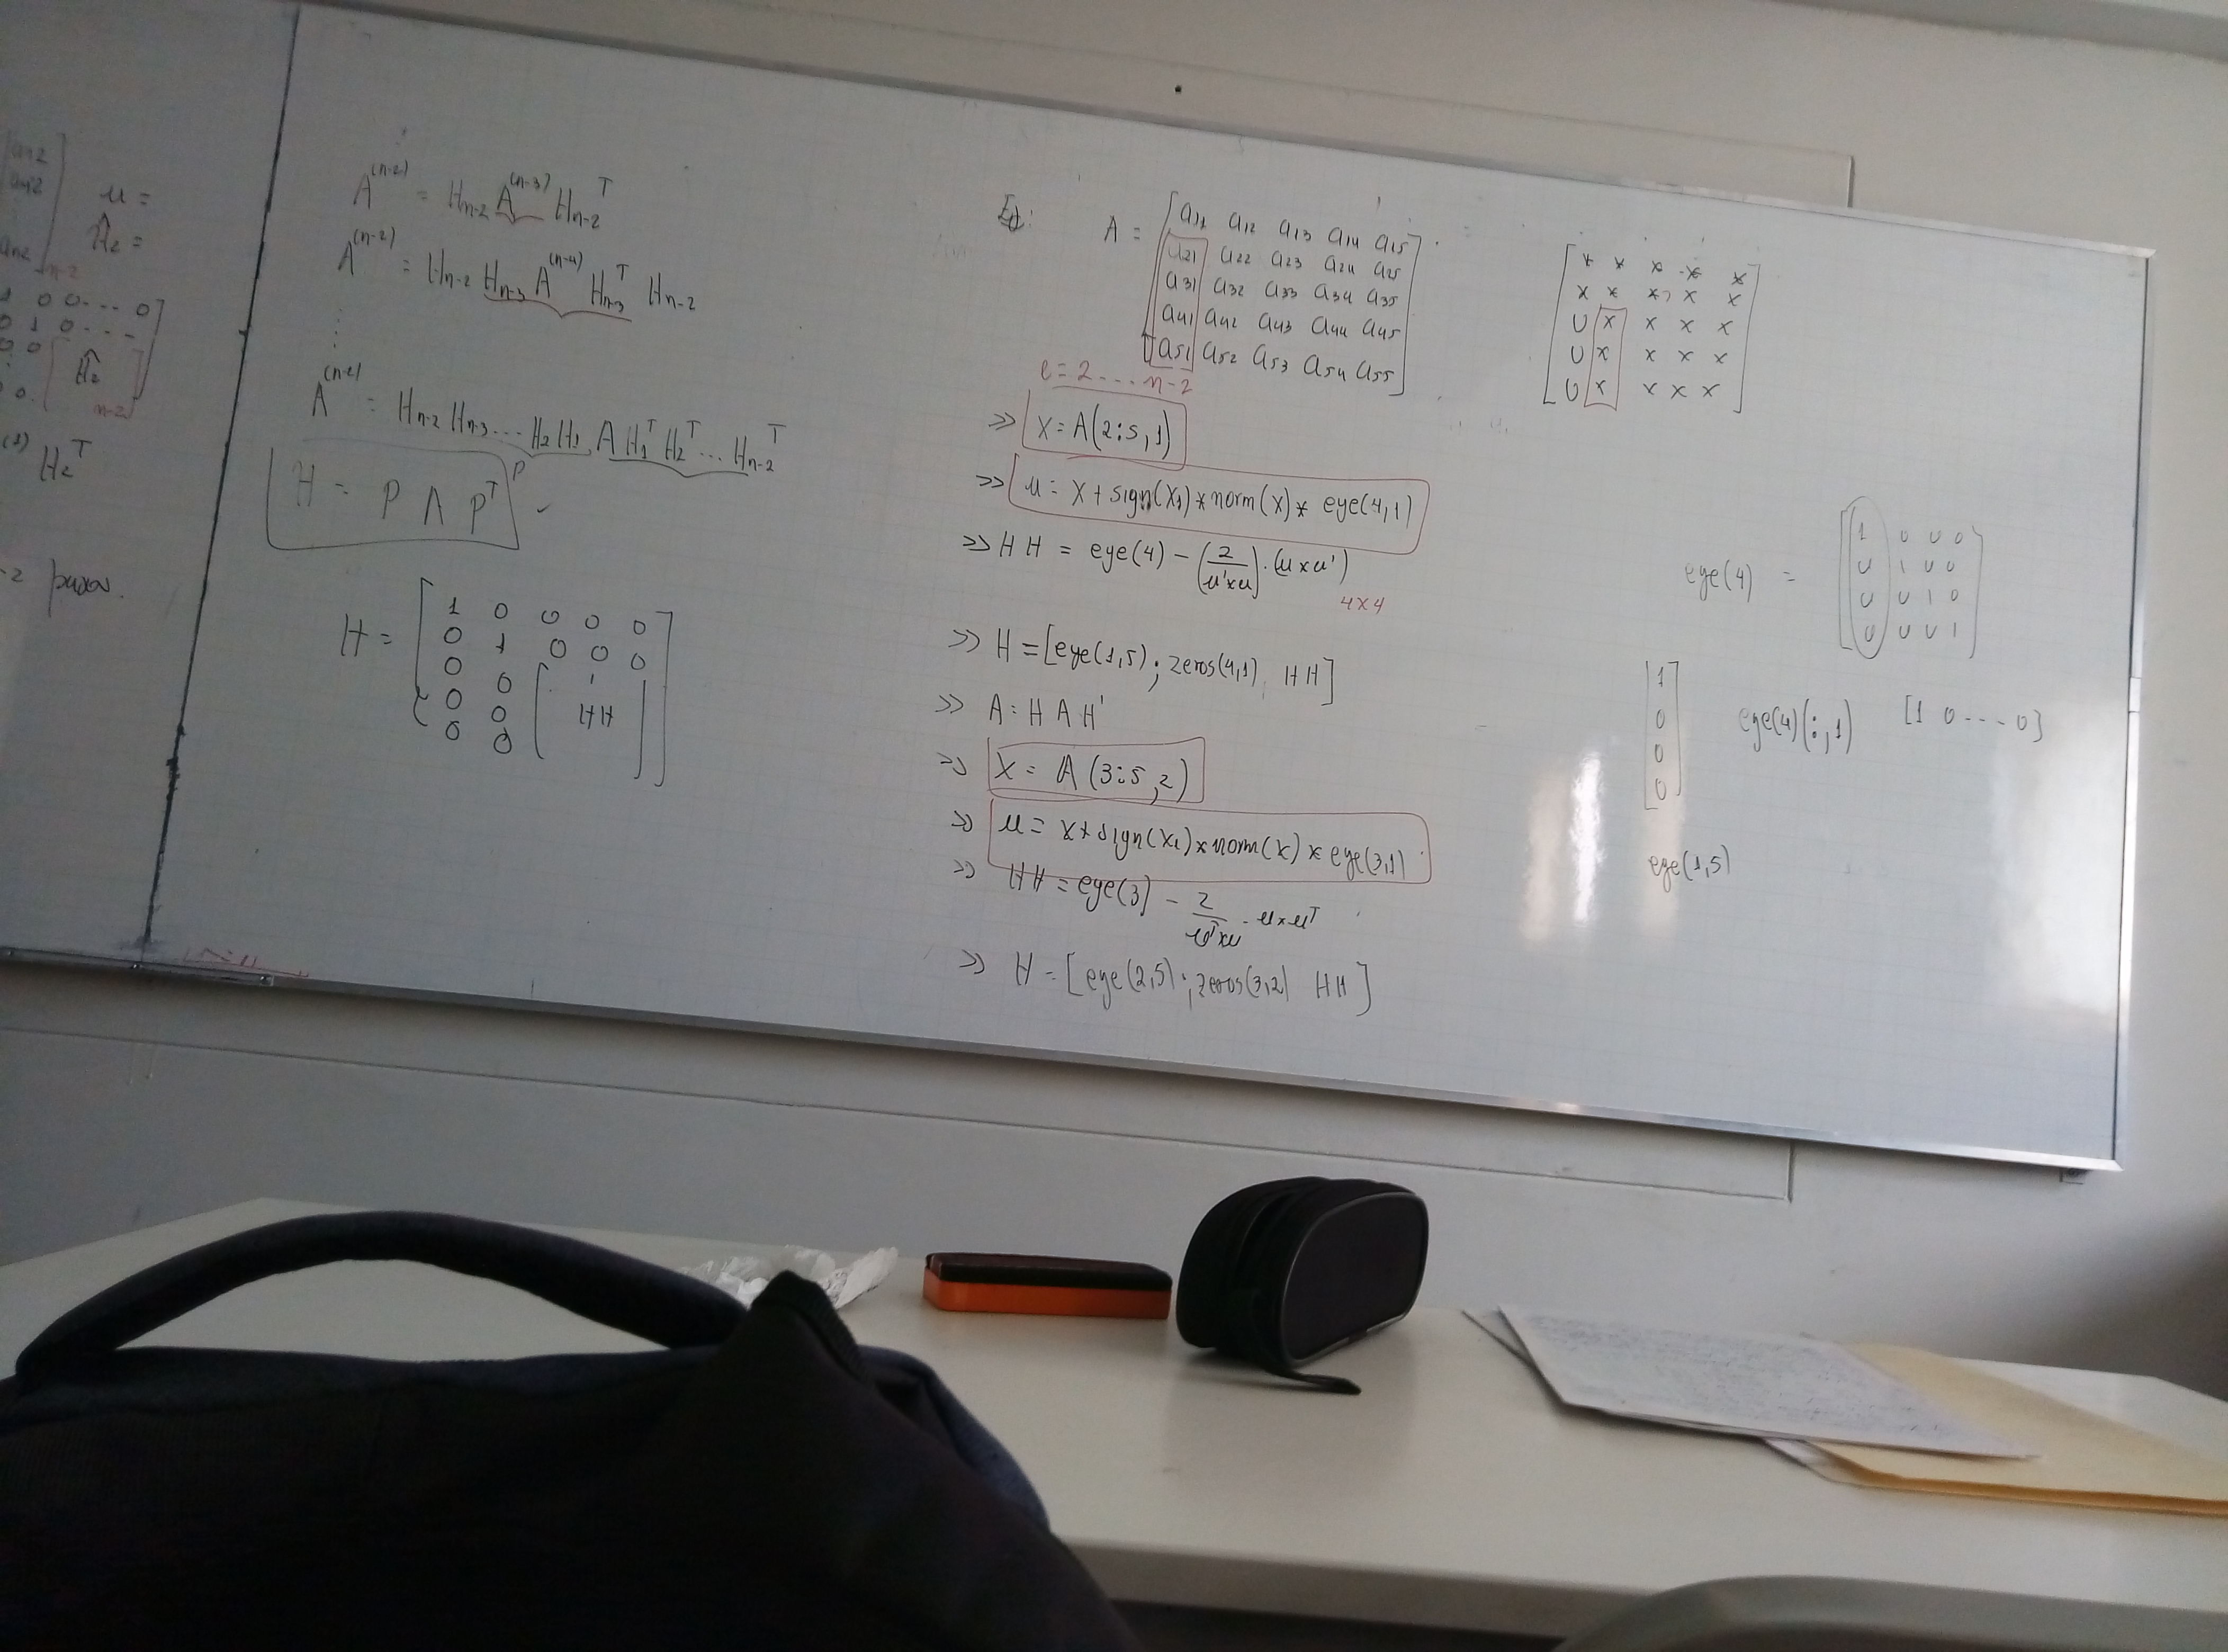 an2
an2
μ =
Ĥ₂ =
n-2
1 0 0 ... 0
0 1 0 ...
0 0 Ĥ₂
0. n-2
H₂ᵀ
A⁽ⁿ⁻²⁾ = Hn-2 A⁽ⁿ⁻³⁾ Hn-2ᵀ
A⁽ⁿ⁻²⁾ = Hn-2 Hn-3 A⁽ⁿ⁻⁴⁾ Hn-3ᵀ Hn-2
⋮
A⁽ⁿ⁻²⁾ = Hn-2 Hn-3 ... H2 H1 A H1ᵀ H2ᵀ ... Hn-2ᵀ
P
H = P A Pᵀ
H = [ 1 0 0 0 0
0 1 0 0 0
0 0
0 0 HH
0 0 ]
Ej: A = [ a11 a12 a13 a14 a15
a21 a22 a23 a24 a25
a31 a32 a33 a34 a35
a41 a42 a43 a44 a45
a51 a52 a53 a54 a55 ]
= 2 ... n-2
>> X = A(2:5,1)
>> μ = X + sign(X1) * norm(X) * eye(4,1)
>> HH = eye(4) - (2/μ'×μ) · (μ×μ')
4×4
>> H = [eye(1,5); zeros(4,1) HH]
>> A = H A H'
>> X = A(3:5,2)
>> μ = X + sign(X1) * norm(X) * eye(3,1)
>> HH = eye(3) - 2/μᵀ×μ · μ×μᵀ
>> H = [eye(2,5); zeros(3,2) HH]
[ x x x x x
x x x x x
0 x x x x
0 x x x x
0 x x x x ]
eye(4) = [ 1 0 0 0
0 1 0 0
0 0 1 0
0 0 0 1 ]
[ 1
0
0
0 ]
eye(4)(:,1) [1 0 ... 0]
eye(1,5)